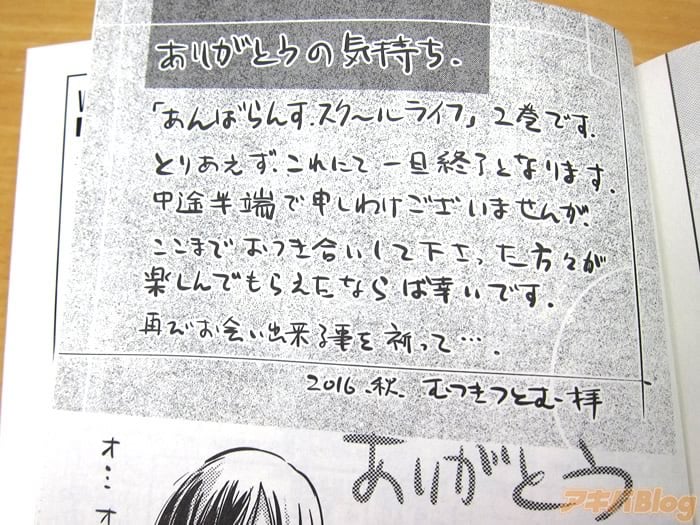 ありがとうの気持ち.
「あんばらんす.スクールライフ」2巻です.
とりあえず.これにて一旦終了となります.
中途半端で申しわけございませんが、
ここまでおつき合いして下さった方々が
楽しんでもらえたならば幸いです.
再びお会い出来る事を祈って….
2016.秋. むつきつとむ拝
ありがとう
オ…
オ
アキバBlog